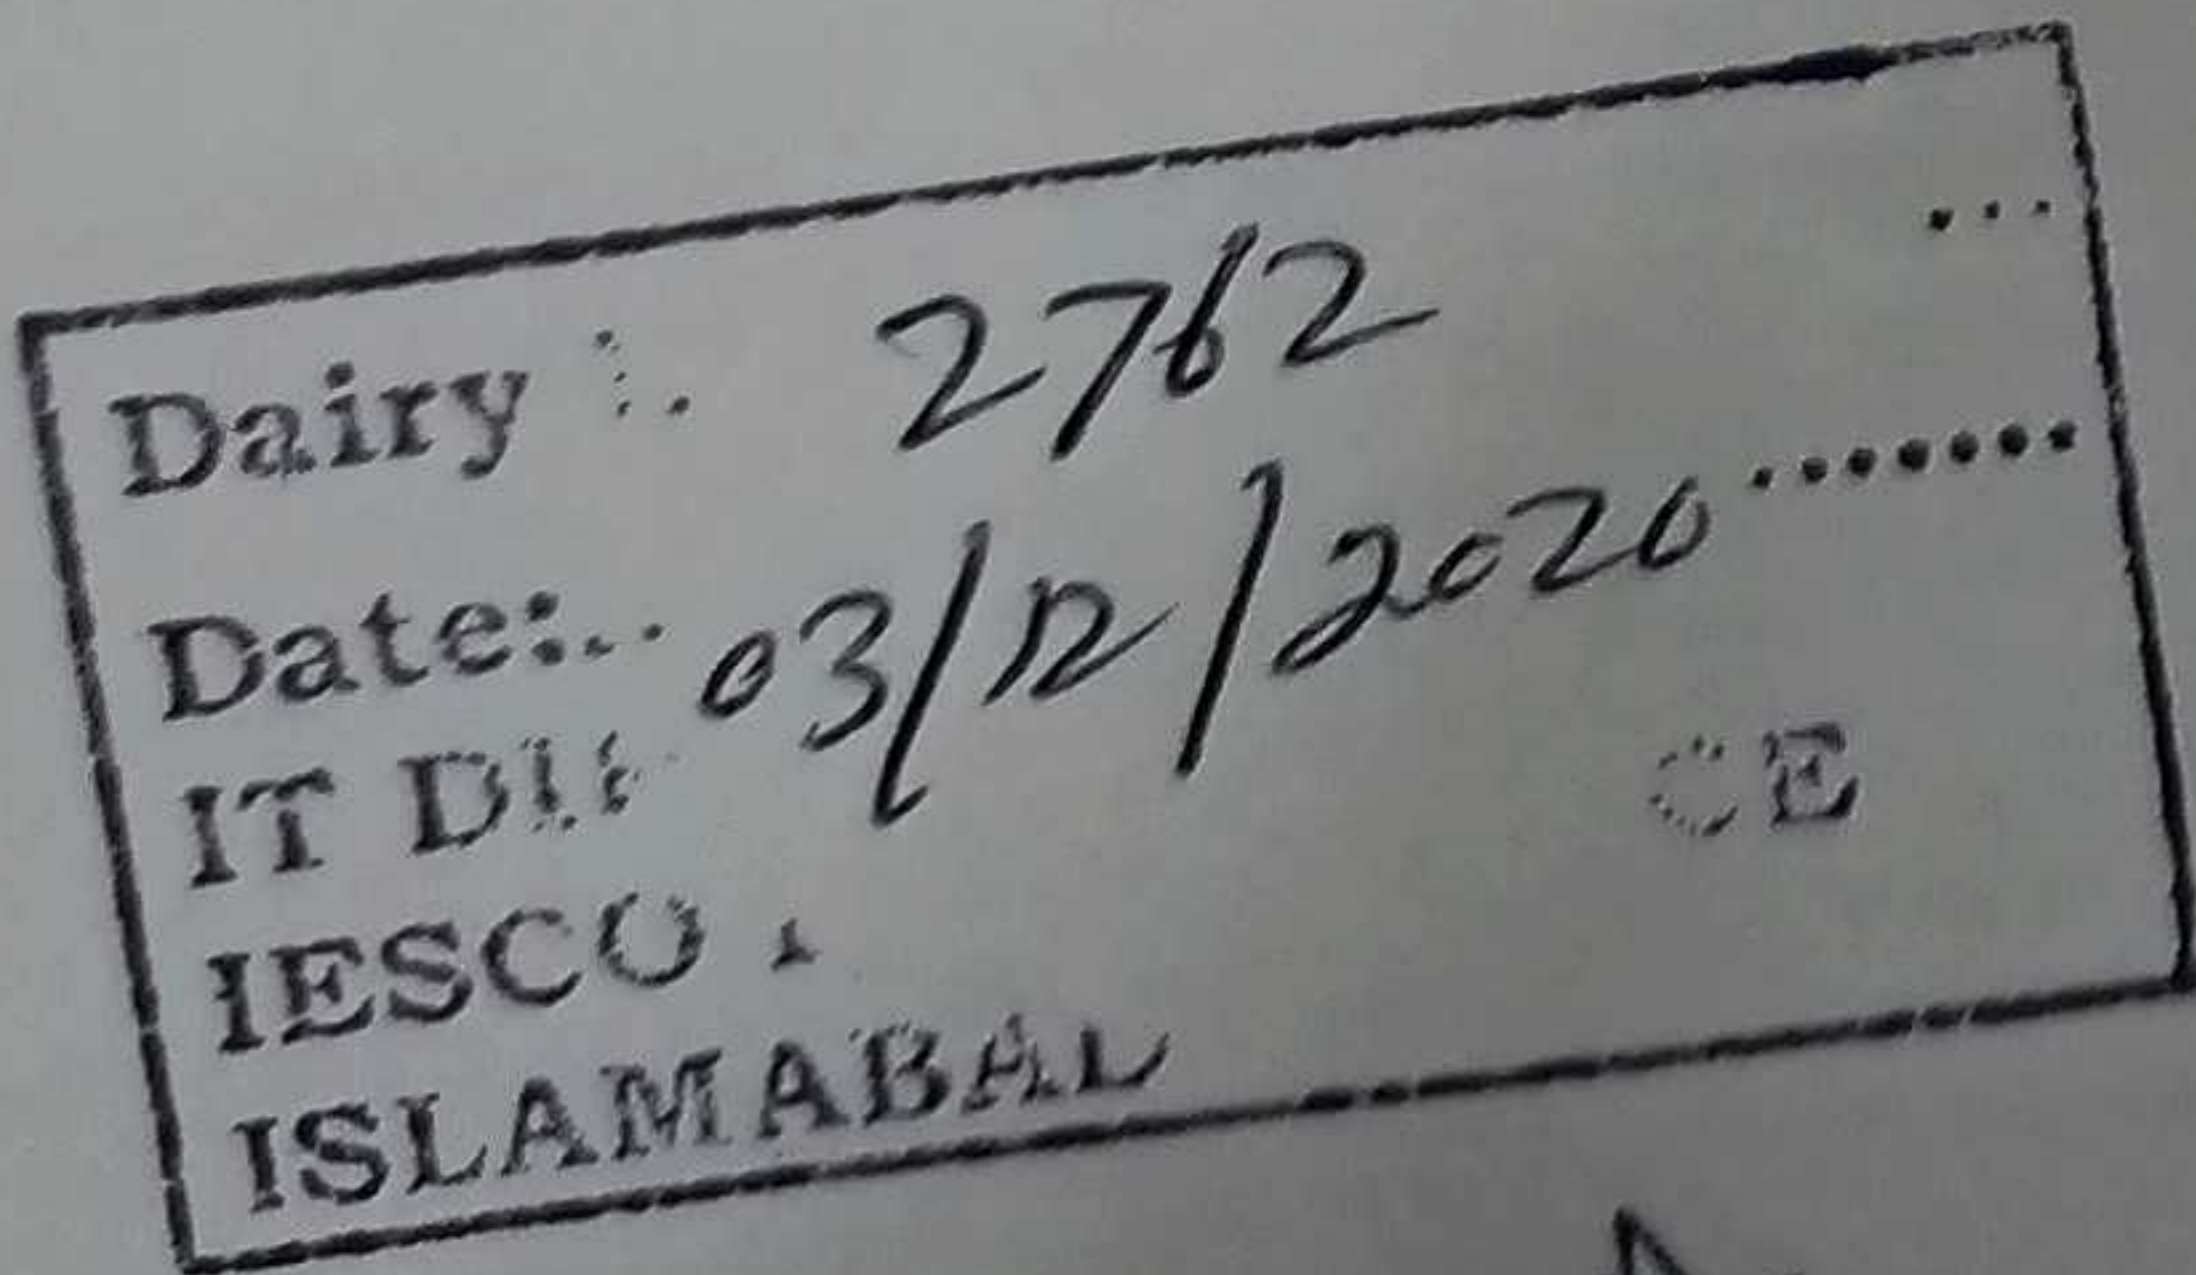 Dairy :. 2762 ...
Date:... 03/12/2020 .......
IT CE
IESCO
ISLAMABAD